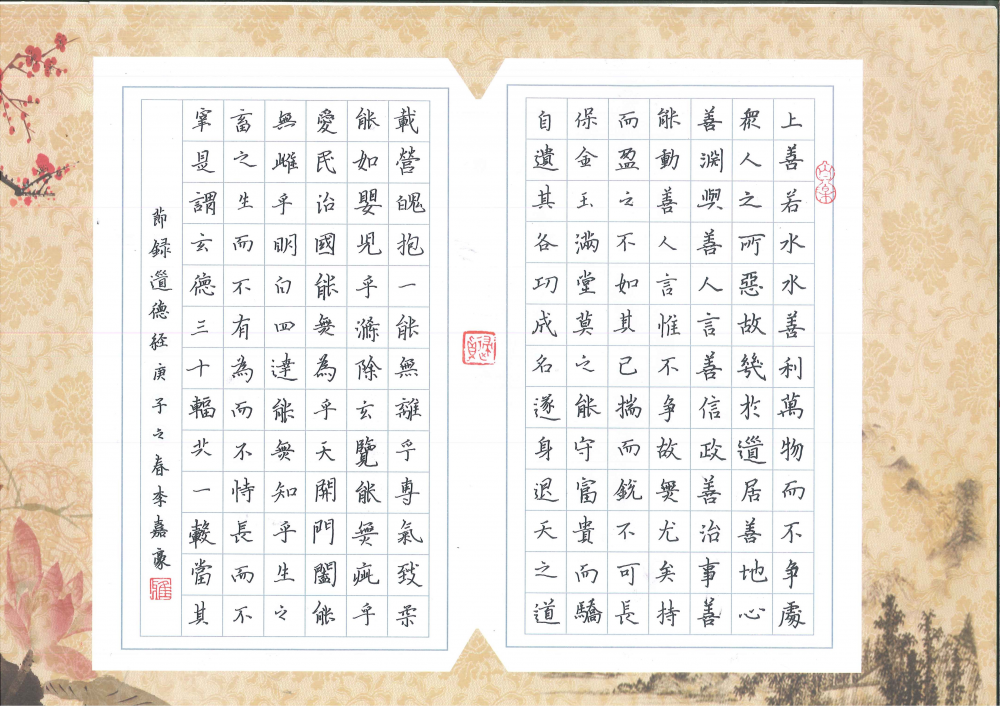 上善若水水善利萬物而不争處
眾人之所惡故幾於道居善地心
善淵與善人言善信政善治事善
能動善人言惟不争故無尤矣持
而盈之不如其已揣而銳不可長
保金玉滿堂莫之能守富貴而驕
自遺其各功成名遂身退天之道
載營魄抱一能無離乎專氣致柔
能如嬰兒乎滌除玄覽能無疵乎
愛民治國能無為乎天開門闔能
無雌乎明白四達能無知乎生之
畜之生而不有為而不恃長而不
宰是謂玄德三十輻共一轂當其
節録道德経庚子之春李嘉豪